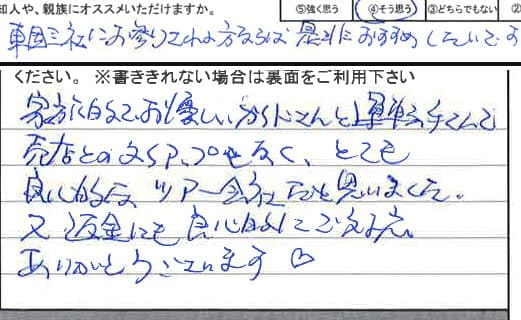 知人や、親族にオススメいただけますか。 ⑤強く思う ④そう思う ③どちらでもない ②
車図三社にお参りされる方ならば 是非におすすめしたいです
ください。 ※書ききれない場合は裏面をご利用下さい
家族的でお優しいガイドさんと運転手さんで
売店とのタイアップもなく、とても
良心的な ツアー会社だと思いました。
又 返金にも 良心的にご対応。
ありがとうございます ♡